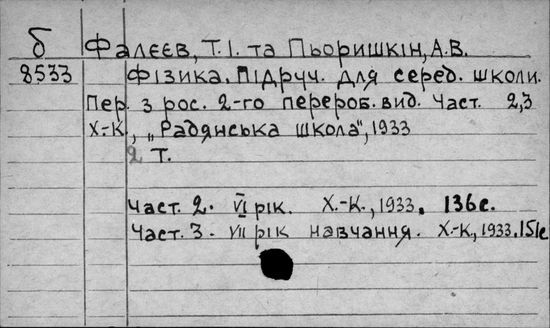 б Фалєєв, Т.І. та Пьоришкін, А.В.
8533 Фізика. Підруч. для серед. школи.
Пер. з рос. 2-го перероб. вид. Част. 2,3
Х.-К., „Радянська школа", 1933
2 Т.
Част. 2. VI рік. Х.-К., 1933. 136с.
Част. 3. VII рік навчання. Х.-К., 1933. 151с